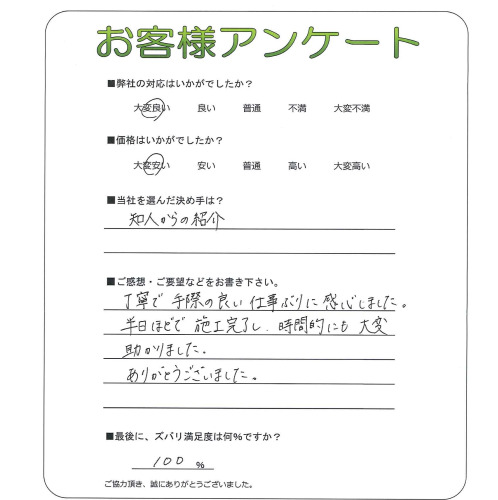 お客様アンケート
■弊社の対応はいかがでしたか？
大変良い 良い 普通 不満 大変不満
■価格はいかがでしたか？
大変安い 安い 普通 高い 大変高い
■当社を選んだ決め手は？
知人からの紹介
■ご感想・ご要望などをお書き下さい。
丁寧で手際の良い仕事ぶりに感心しました。
半日ほどで施工完了し、時間的にも大変
助かりました。
ありがとうございました。
■最後に、ズバリ満足度は何%ですか？
100 %
ご協力頂き、誠にありがとうございました。